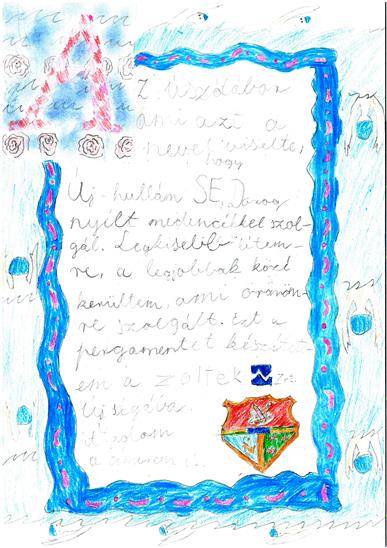 AZ úszótábor
ami azt a
nevet viselte,
hogy
Új-hullám SE, Dorog
nyílt medencékkel szol-
gál. Legkisebb ütem-
re, a legjobbak közé
kerültem, ami örömöm-
re szolgált. Ezt a
pergamentet készítet-
em a zoltek
Újságába